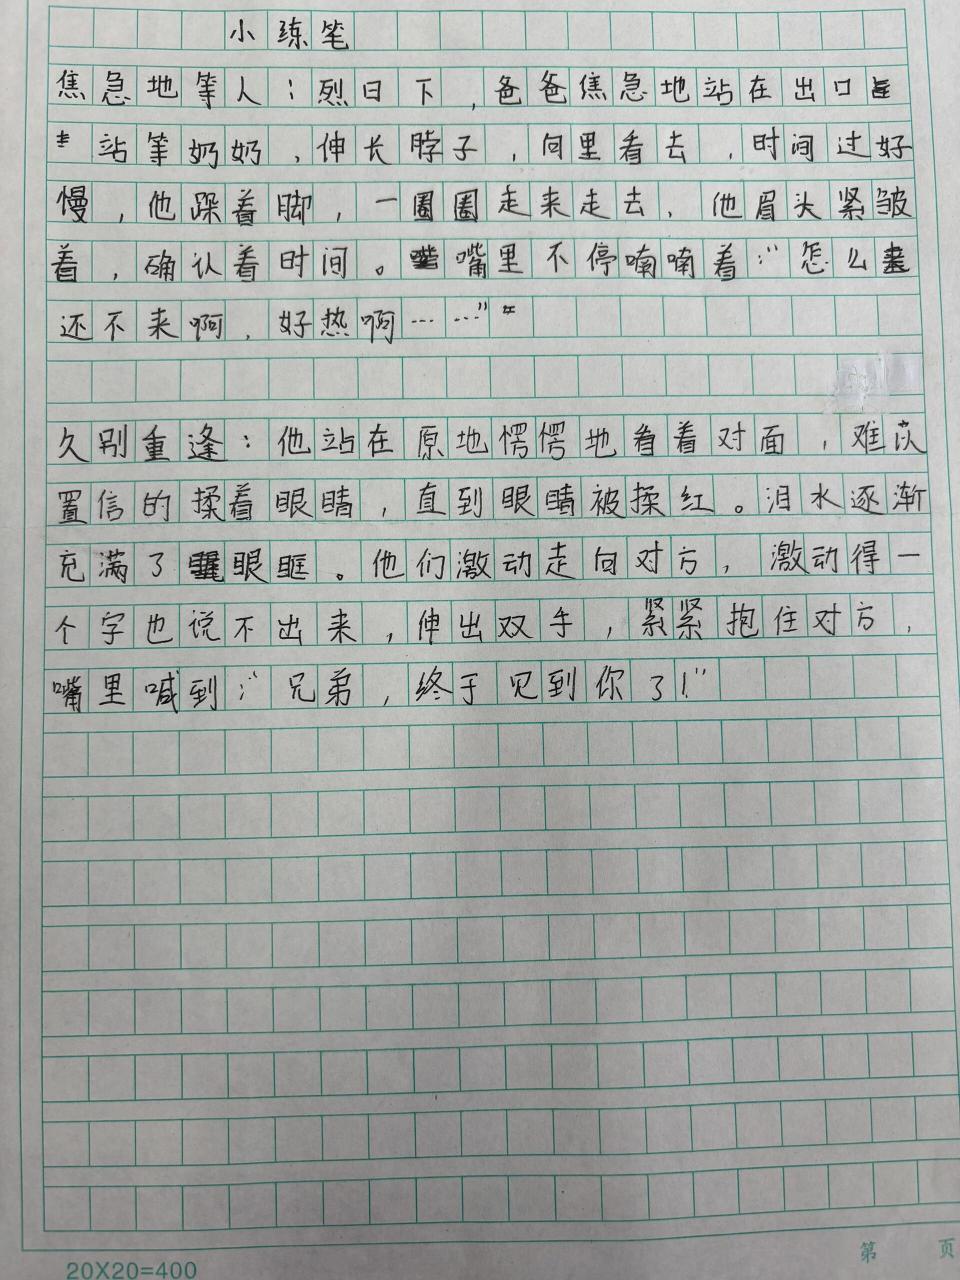 小练笔
焦急地等人：烈日下，爸爸焦急地站在出口
站等奶奶，伸长脖子，向里看去，时间过好
慢，他跺着脚，一圈圈走来走去，他眉头紧皱
着，确认着时间。嘴里不停喃喃着：“怎么
还不来啊，好热啊……”
久别重逢：他站在原地愣愣地看着对面，难以
置信的揉着眼睛，直到眼睛被揉红。泪水逐渐
充满了眼眶。他们激动走向对方，激动得一
个字也说不出来，伸出双手，紧紧抱住对方，
嘴里喊到：“兄弟，终于见到你了！”
20X20=400
第 页